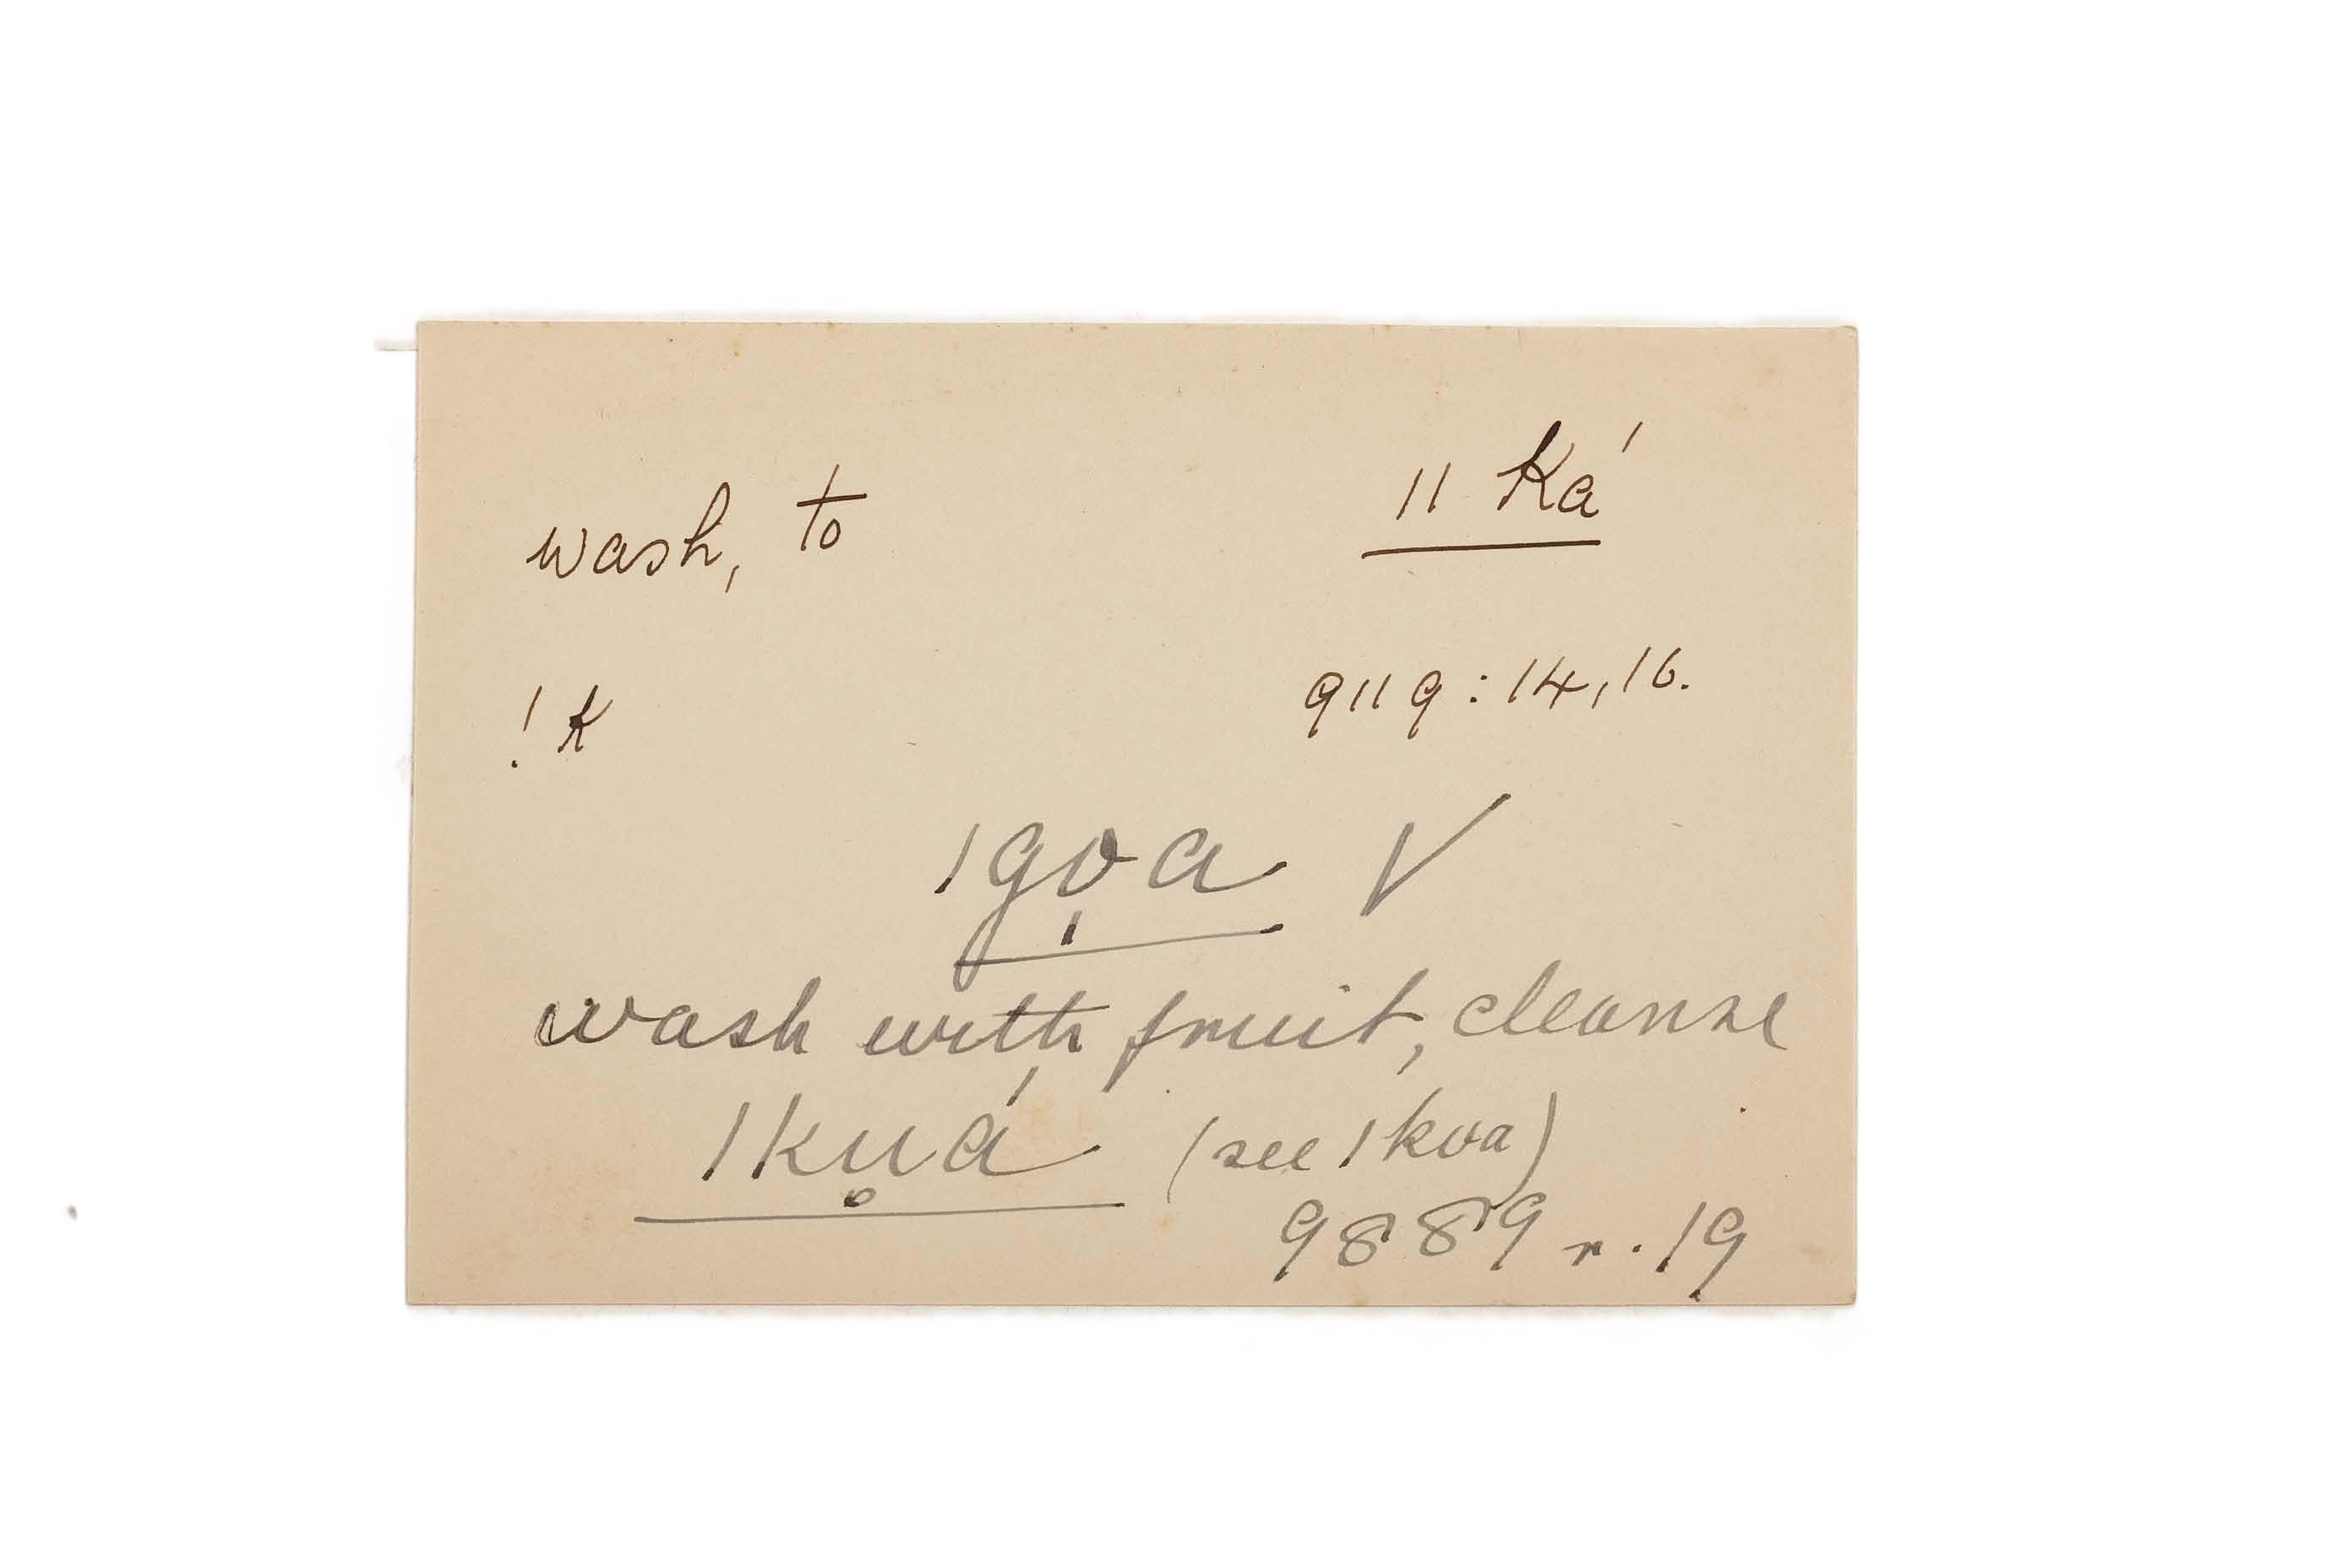 wash, to ǁ Ká
!k 9119:14,16.
ǀgo̩a √
wash with fruit, cleanse
ǀku̥á (see ǀkoa)
9889 r. 19